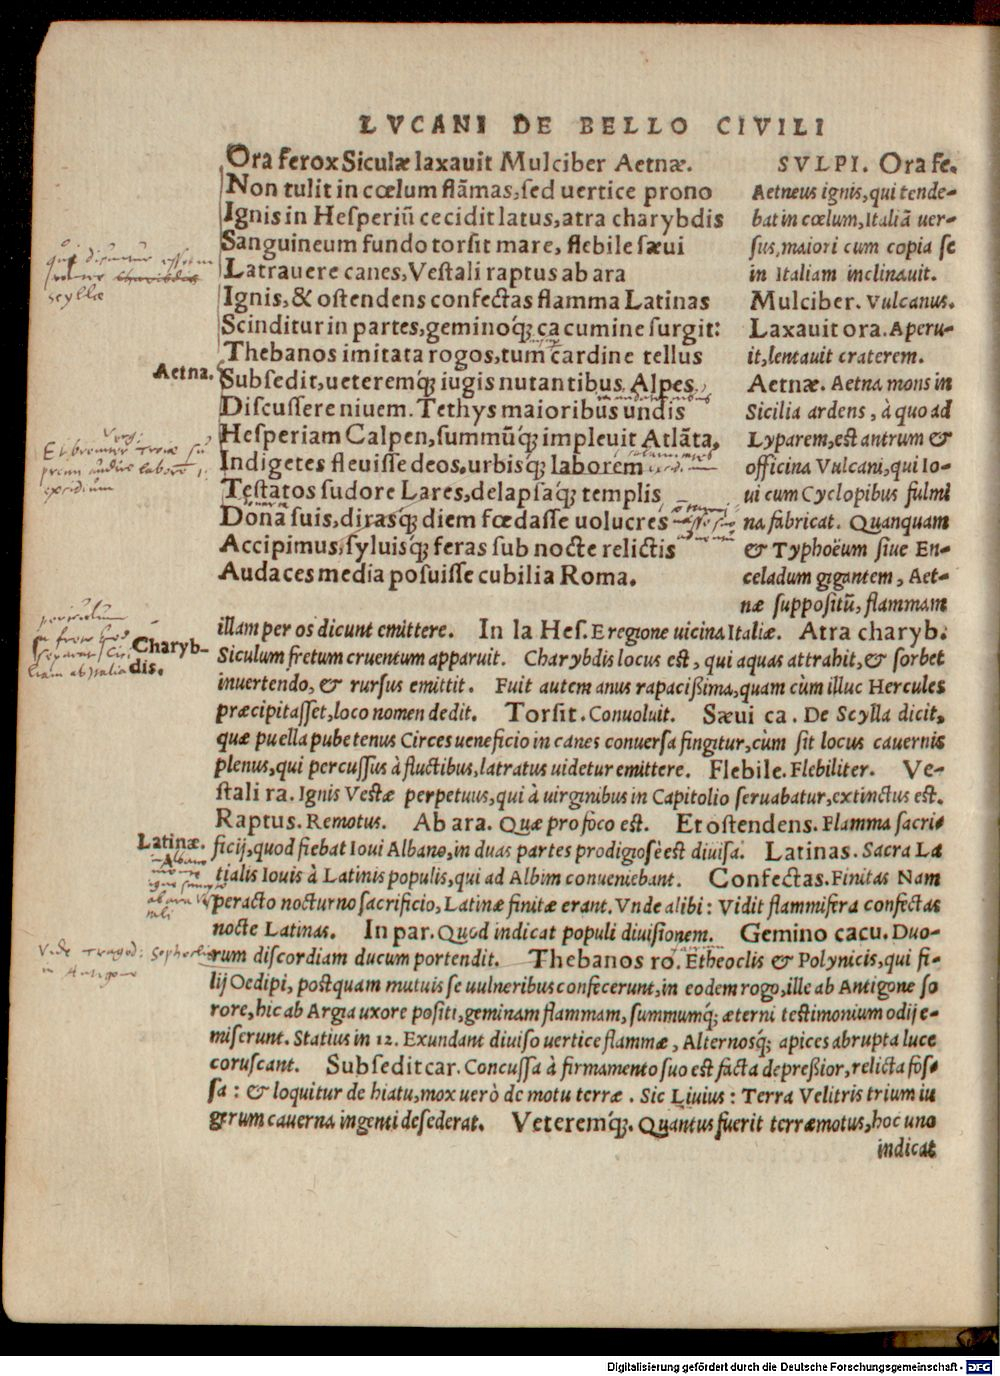 LVCANI DE BELLO CIVILI
Ora ferox Siculæ laxauit Mulciber Aetnæ.
Non tulit in cœlum flãmas, sed uertice prono
Ignis in Hesperiũ cecidit latus, atra charybdis
Sanguineum fundo torsit mare, flebile sæui
Latrauere canes, Vestali raptus ab ara
Ignis, & ostendens confectas flamma Latinas
Scinditur in partes, geminoq́ꝫ cacumine surgit:
Thebanos imitata rogos, tum cardine tellus
Subsedit, ueteremq́ꝫ iugis nutantibus Alpes
Discussere niuem. Tethys maioribus undis
Hesperiam Calpen, summũq́ꝫ impleuit Atlãta.
Indigetes fleuisse deos, urbisq́ꝫ laborem
Testatos sudore Lares, delapsaq́ꝫ templis
Dona suis, dirasq́ꝫ diem fœdasse uolucres
Accipimus, syluisq́ꝫ feras sub nocte relictis
Audaces media posuisse cubilia Roma.
SVLPI. Ora fe.
Aetneus ignis, qui tende-
bat in cœlum, Italiã uer-
sus, maiori cum copia se
in Italiam inclinauit.
Mulciber. Vulcanus.
Laxauit ora. Aperu-
it, lentauit craterem.
Aetnæ. Aetna mons in
Sicilia ardens, à quo ad
Lyparem, est antrum &
officina Vulcani, qui Io-
ui cum Cyclopibus fulmi
na fabricat. Quanquam
& Typhoëum siue En-
celadum gigantem, Aet-
næ suppositũ, flammam
illam per os dicunt emittere. In la Hes. E regione uicina Italiæ. Atra charyb.
Siculum fretum cruentum apparuit. Charybdis locus est, qui aquas attrahit, & sorbet
inuertendo, & rursus emittit. Fuit autem anus rapacißima, quam cùm illuc Hercules
præcipitasset, loco nomen dedit. Torsit. Conuoluit. Sæui ca. De Scylla dicit,
quæ puella pube tenus Circes ueneficio in canes conuersa fingitur, cùm sit locus cauernis
plenus, qui percussus à fluctibus, latratus uidetur emittere. Flebile. Flebiliter. Ve-
stali ra. Ignis Vestæ perpetuus, qui à uirginibus in Capitolio seruabatur, extinctus est.
Raptus. Remotus. Ab ara. Quæ pro foco est. Et ostendens. Flamma sacri-
ficij, quod fiebat Ioui Albano, in duas partes prodigiosè est diuisa. Latinas. Sacra La
tialis Iouis à Latinis populis, qui ad Albim conueniebant. Confectas. Finitas Nam
peracto nocturno sacrificio, Latinæ finitæ erant. Vnde alibi: Vidit flammifera confectas
nocte Latinas. In par. Quod indicat populi diuisionem. Gemino cacu. Duo-
rum discordiam ducum portendit. Thebanos ro. Etheoclis & Polynicis, qui fi-
lij Oedipi, postquam mutuis se uulneribus confecerunt, in eodem rogo, ille ab Antigone so
rore, hic ab Argia uxore positi, geminam flammam, summumq́ꝫ æterni testimonium odij e-
miserunt. Statius in 12. Exundant diuiso uertice flammæ, Alternosq́ꝫ apices abrupta luce
coruscant. Subsedit car. Concussa à firmamento suo est facta depreßior, relicta fos-
sa: & loquitur de hiatu, mox uerò de motu terræ. Sic Liuius: Terra Velitris trium iu
gerum cauerna ingenti desederat. Veteremq́ꝫ. Quantus fuerit terræmotus, hoc uno
indicat
Aetna.
Charyb-
dis.
Latinæ.
scyllæ
excidium
Vide Tragœd: Sophoclis
in Antigone
Digitalisierung gefördert durch die Deutsche Forschungsgemeinschaft - DFG